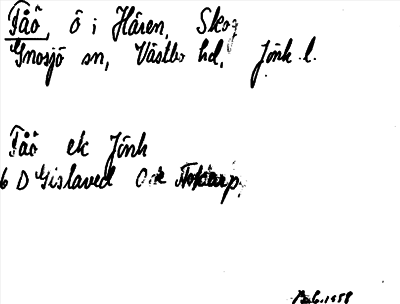 Fåö, ö i Hären, Skog
Gnosjö sn, Västbo hd, Jönk. l.
Fåö ek Jönk
6 D Gislaved